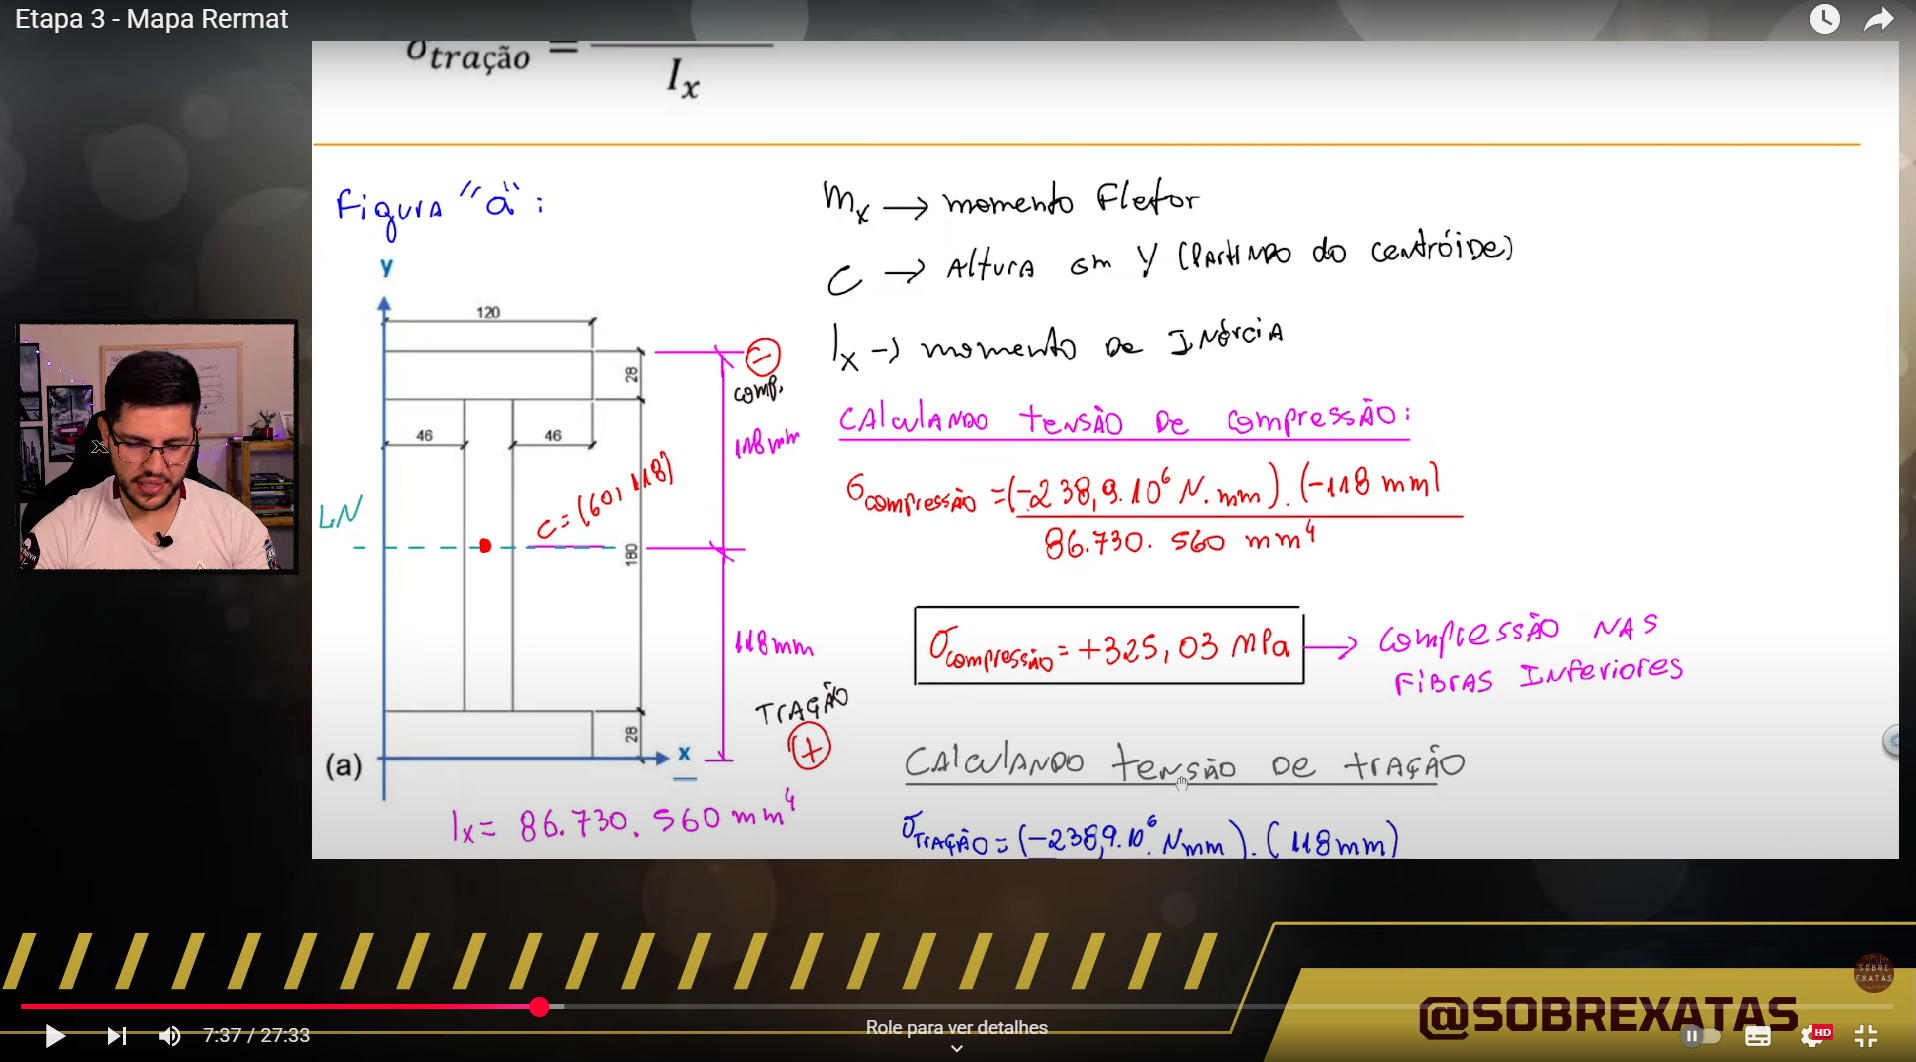 Etapa 3 - Mapa Rermat
σtração =
Ix
Figura "a":
y
120
28
46
46
LN
C=(60,118)
180
28
(a)
x
Ix= 86.730.560 mm⁴
−
comp.
118mm
118mm
TRAÇÃO
+
Mx → momento Fletor
C → Altura em Y (Partindo do centróide)
Ix → momento de Inércia
Calculando tensão de compressão:
σcompressão = (-238,9.10⁶ N.mm).(-118 mm)
86.730.560 mm⁴
σcompressão = +325,03 MPa → compressão nas
fibras inferiores
Calculando tensão de tração
σtração = (-238,9.10⁶ Nmm).(118mm)
SOBRE
EXATAS
@SOBREXATAS
7:37 / 27:33
Role para ver detalhes
HD